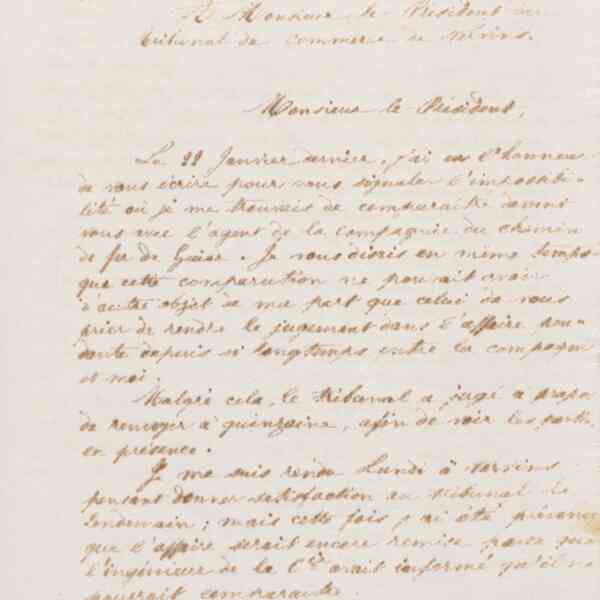 A Monsieur le Président du
tribunal de commerce de Vervins.
Monsieur le Président,
Le 22 Janvier dernier, j'ai eu l'honneur
de vous écrire pour vous signaler l'impossibi-
lité où je me trouvais de comparaître devant
vous avec l'agent de la compagnie du chemin
de fer de Guise. Je vous disais en même temps
que cette comparution ne pouvait avoir
d'autre objet de ma part que celui de vous
prier de rendre le jugement dans l'affaire pen-
dante depuis si longtemps entre la compagnie
et moi.
Malgré cela, le tribunal a jugé à propos
de renvoyer à quinzaine, afin de voir les parties
en présence.
Je me suis rendu Lundi à Vervins
pensant donner satisfaction au tribunal le
lendemain; mais cette fois j'ai été prévenu
que l'affaire serait encore remise parce que
l'ingénieur de la Cie avait informé qu'il ne
pourrait comparaître.